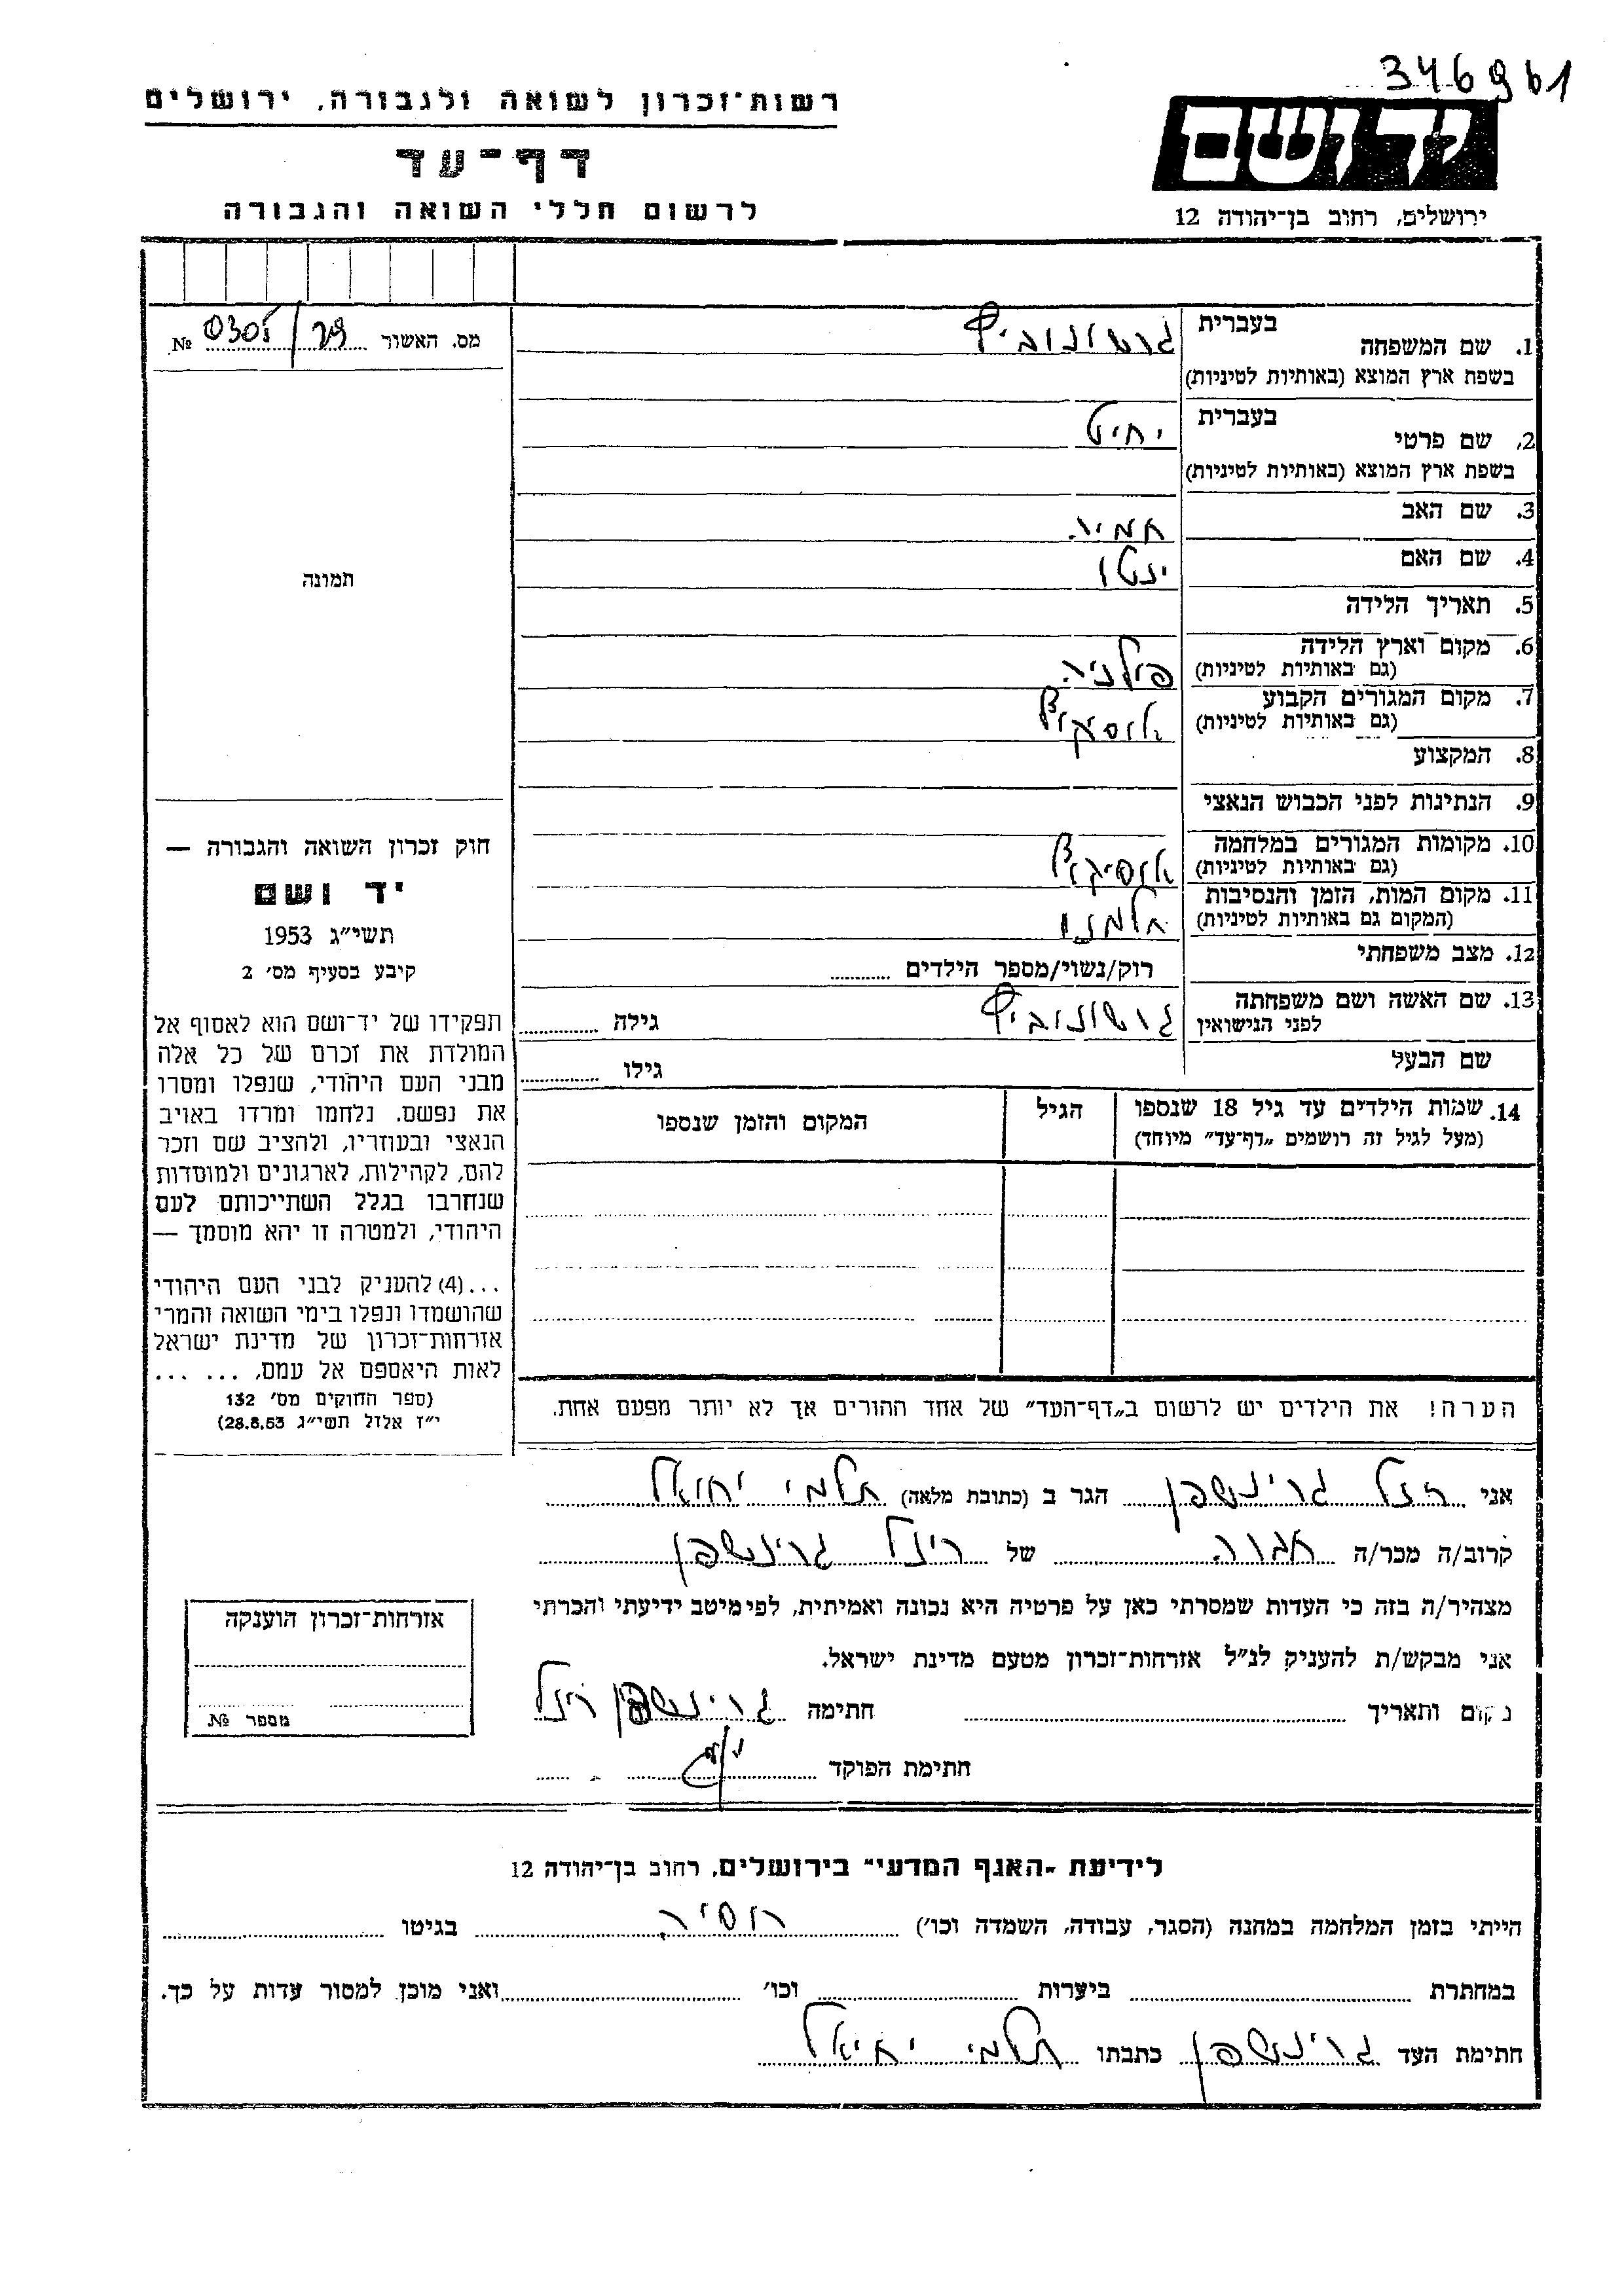 346961
רשות־זכרון לשואה ולגבורה, ירושלים
דף־עד
לרשום חללי השואה והגבורה
יד ושם
ירושלים, רחוב בן־יהודה 12
מס. האשור 29/0305 №
תמונה
חוק זכרון השואה והגבורה —
יד ושם
תשי״ג 1953
קיבע בסעיף מס׳ 2
תפקידו של יד־ושם הוא לאסוף אל
המולדת את זכרם של כל אלה
מבני העם היהודי, שנפלו ומסרו
את נפשם. נלחמו ומרדו באויב
הנאצי ובעוזריו, ולהציב שם וזכר
להם, לקהילות, לארגונים ולמוסדות
שנחרבו בגלל השתייכותם לעם
היהודי, ולמטרה זו יהא מוסמך —
...(4) להעניק לבני העם היהודי
שהושמדו ונפלו בימי השואה והמרי
אזרחות־זכרון של מדינת ישראל
לאות היאספם אל עמם. ... ...
(ספר החוקים מס׳ 132
י״ז אלול תשי״ג 28.8.53)
1. שם המשפחה בעברית גרשונוביץ
בשפת ארץ המוצא (באותיות לטיניות)
2. שם פרטי בעברית
בשפת ארץ המוצא (באותיות לטיניות)
3. שם האב
4. שם האם ינטל
5. תאריך הלידה
6. מקום וארץ הלידה
(גם באותיות לטיניות) פולניה
7. מקום המגורים הקבוע
(גם באותיות לטיניות)
8. המקצוע
9. הנתינות לפני הכבוש הנאצי
10. מקומות המגורים במלחמה
(גם באותיות לטיניות)
11. מקום המות, הזמן והנסיבות
(המקום גם באותיות לטיניות)
12. מצב משפחתי רוק/נשוי/מספר הילדים
13. שם האשה ושם משפחתה גרשונוביץ גילה
לפני הנישואין
שם הבעל גילו
14. שמות הילדים עד גיל 18 שנספו הגיל המקום והזמן שנספו
(מעל לגיל זה רושמים „דף־עד״ מיוחד)
הערה! את הילדים יש לרשום ב„דף־העד״ של אחד ההורים אך לא יותר מפעם אחת.
אני רנל גרינשפן הגר ב (כתובת מלאה) תלמי יחיאל
קרוב/ה מכר/ה של רינל גרינשפן
מצהיר/ה בזה כי העדות שמסרתי כאן על פרטיה היא נכונה ואמיתית, לפי מיטב ידיעתי והכרתי
אני מבקש/ת להעניק לנ״ל אזרחות־זכרון מטעם מדינת ישראל.
מקום ותאריך חתימה גרינשפן רנל
חתימת הפוקד
אזרחות־זכרון הוענקה
מספר №
לידיעת „האגף המדעי״ בירושלים, רחוב בן־יהודה 12
הייתי בזמן המלחמה במחנה (הסגר, עבודה, השמדה וכו׳) רוסיה בגיטו
במחתרת ביערות וכו׳ ואני מוכן למסור עדות על כך.
חתימת העד גרינשפן כתבתו תלמי יחיאל